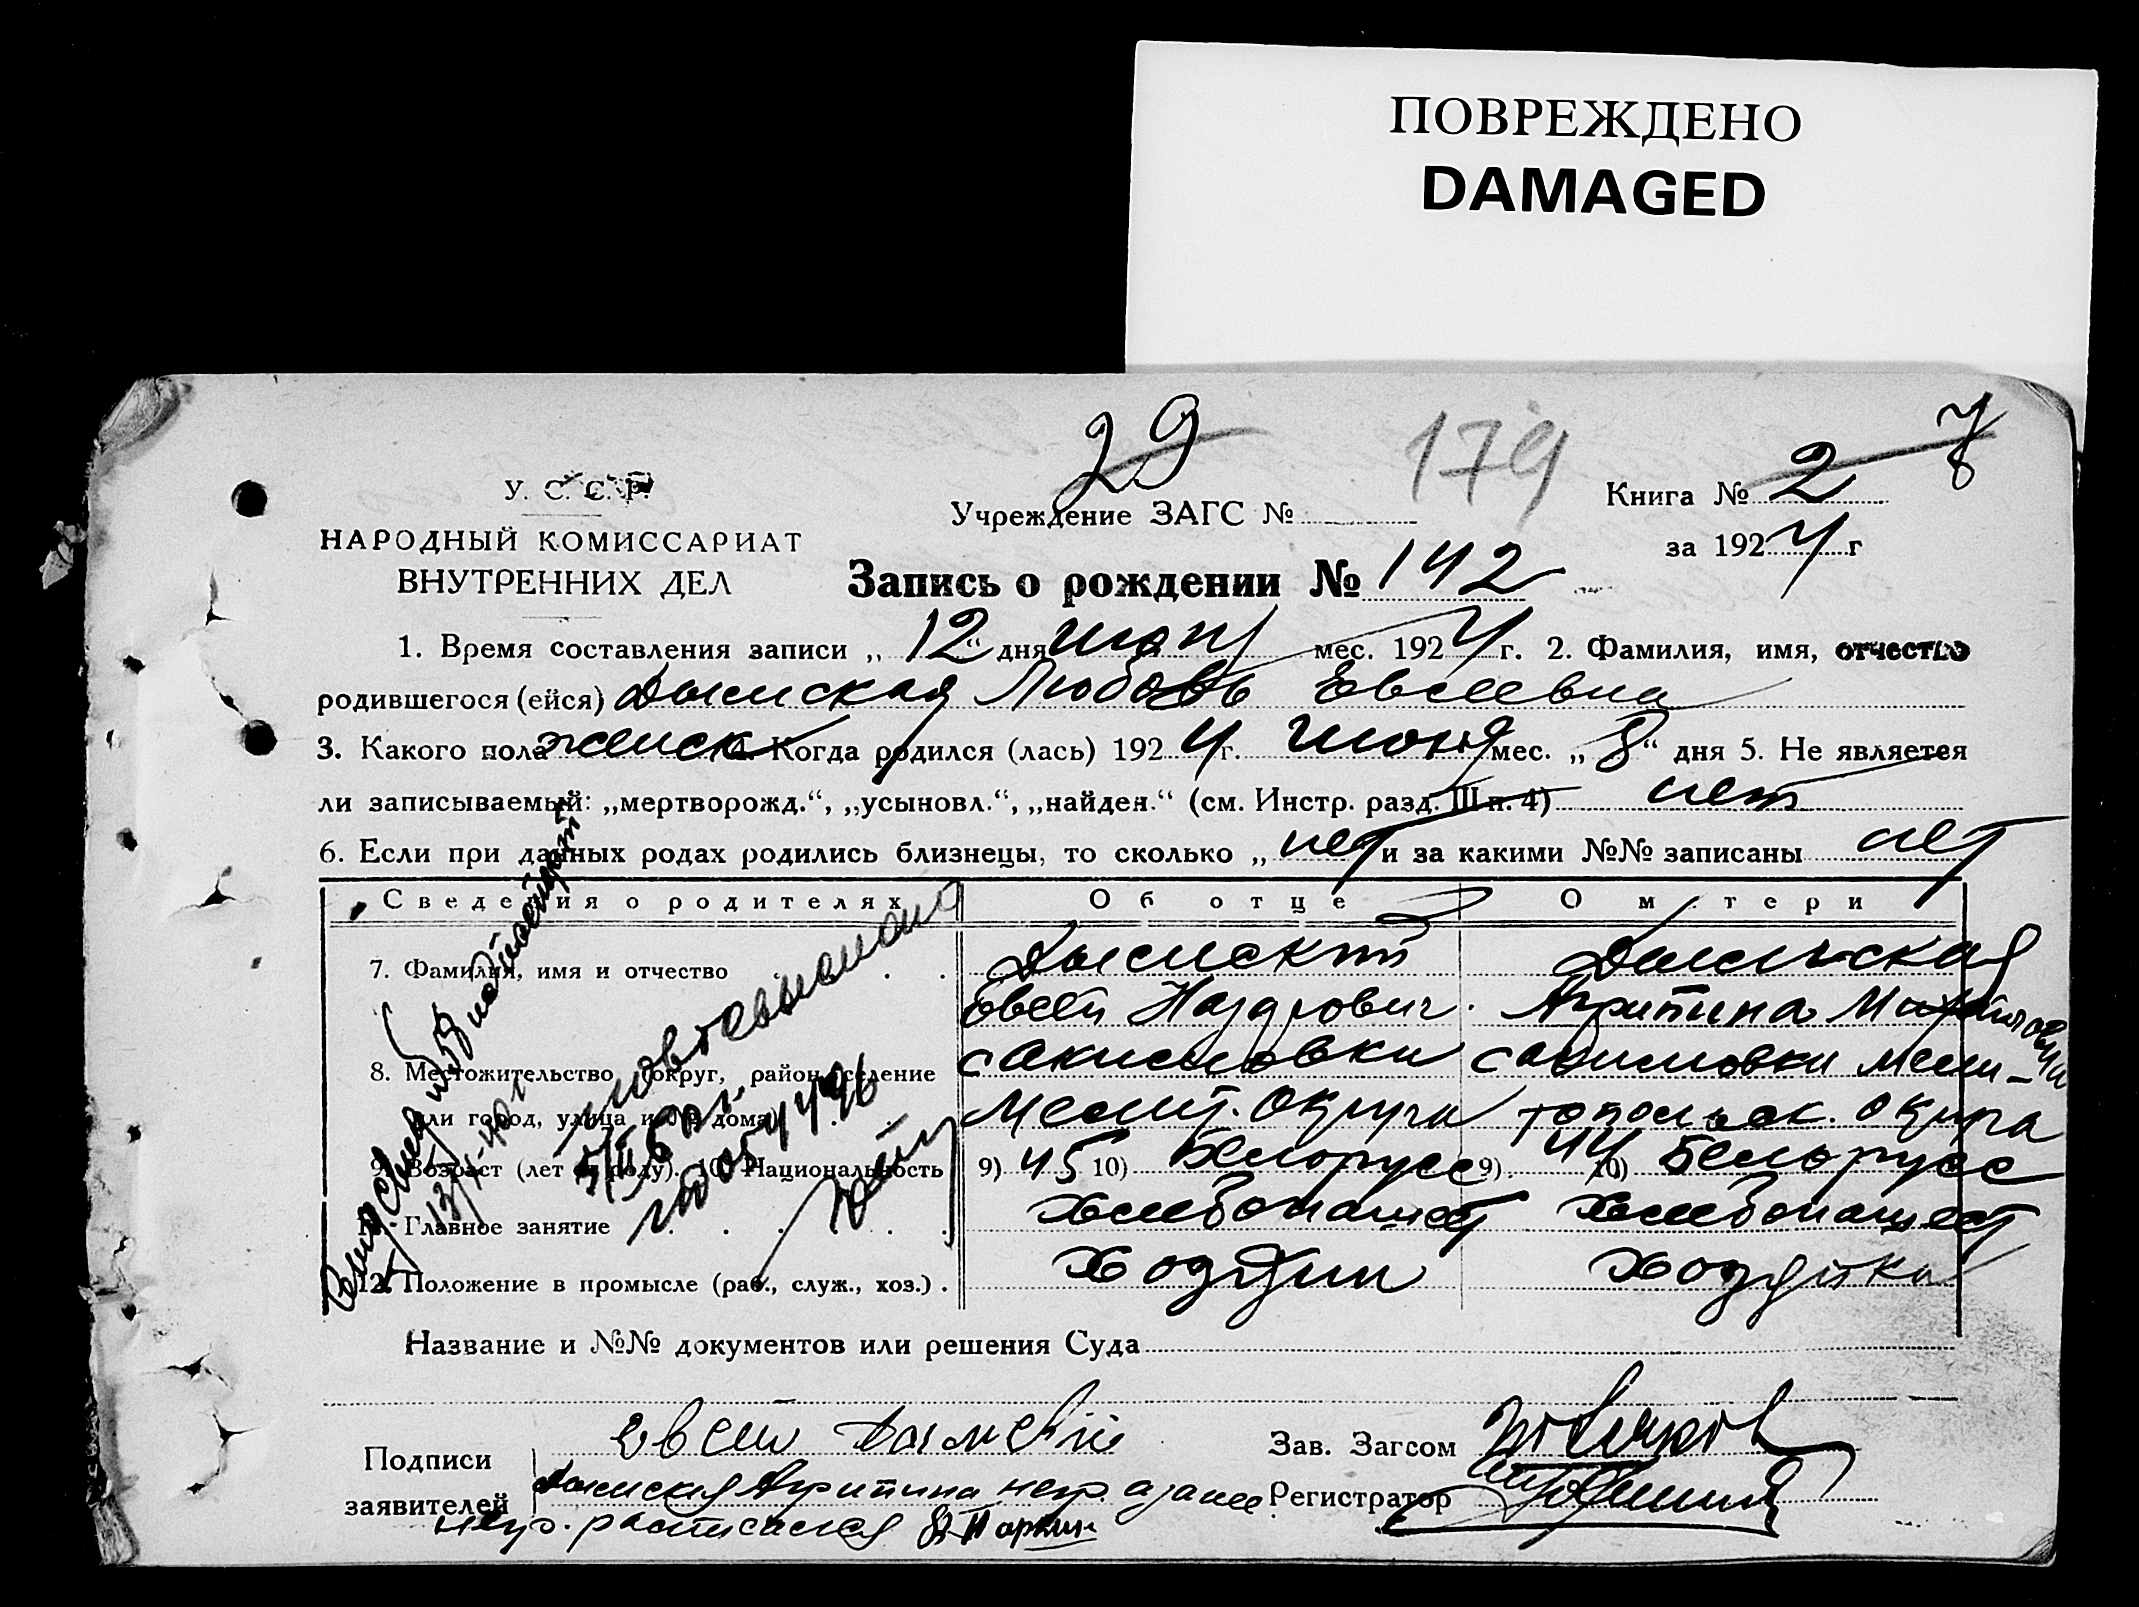 ПОВРЕЖДЕНО
DAMAGED
29 179 7
У. С. С. Р.
НАРОДНЫЙ КОМИССАРИАТ
ВНУТРЕННИХ ДЕЛ
Учреждение ЗАГС №
Книга № 2
за 1924 г
Запись о рождении № 142
1. Время составления записи „ 12 “ дня июня мес. 1924 г. 2. Фамилия, имя, отчество
родившегося (ейся) Дымская Любовь Евсеевна
3. Какого пола женск 4. Когда родился (лась) 1924 г. июня мес. „ 8 “ дня 5. Не является
ли записываемый: „мертворожд.“, „усыновл.“, „найден.“ (см. Инстр. разд. III п. 4) нет
6. Если при данных родах родились близнецы, то сколько „ нет и за какими №№ записаны нет
Сведения о родителях Об отце О матери
7. Фамилия, имя и отчество Дымский Дымская
Евсей Назарович Агрипина Михайловна
8. Местожительство (округ, район, селение с Акимовки с Акимовки Мели-
или город, улица и № дома) Мелит. Округа топольск. Округа
9. Возраст (лет от роду). 10. Национальность 9) 45 10) Белорусс 9) 44 10) Белорусс
11. Главное занятие хлебопашест хлебопашест
12. Положение в промысле (раб., служ., хоз.) Хозяин Хозяйка
Название и №№ документов или решения Суда
Подписи
заявителей
Евсей Дымский
Дымская Агрипина
Зав. Загсом
Регистратор